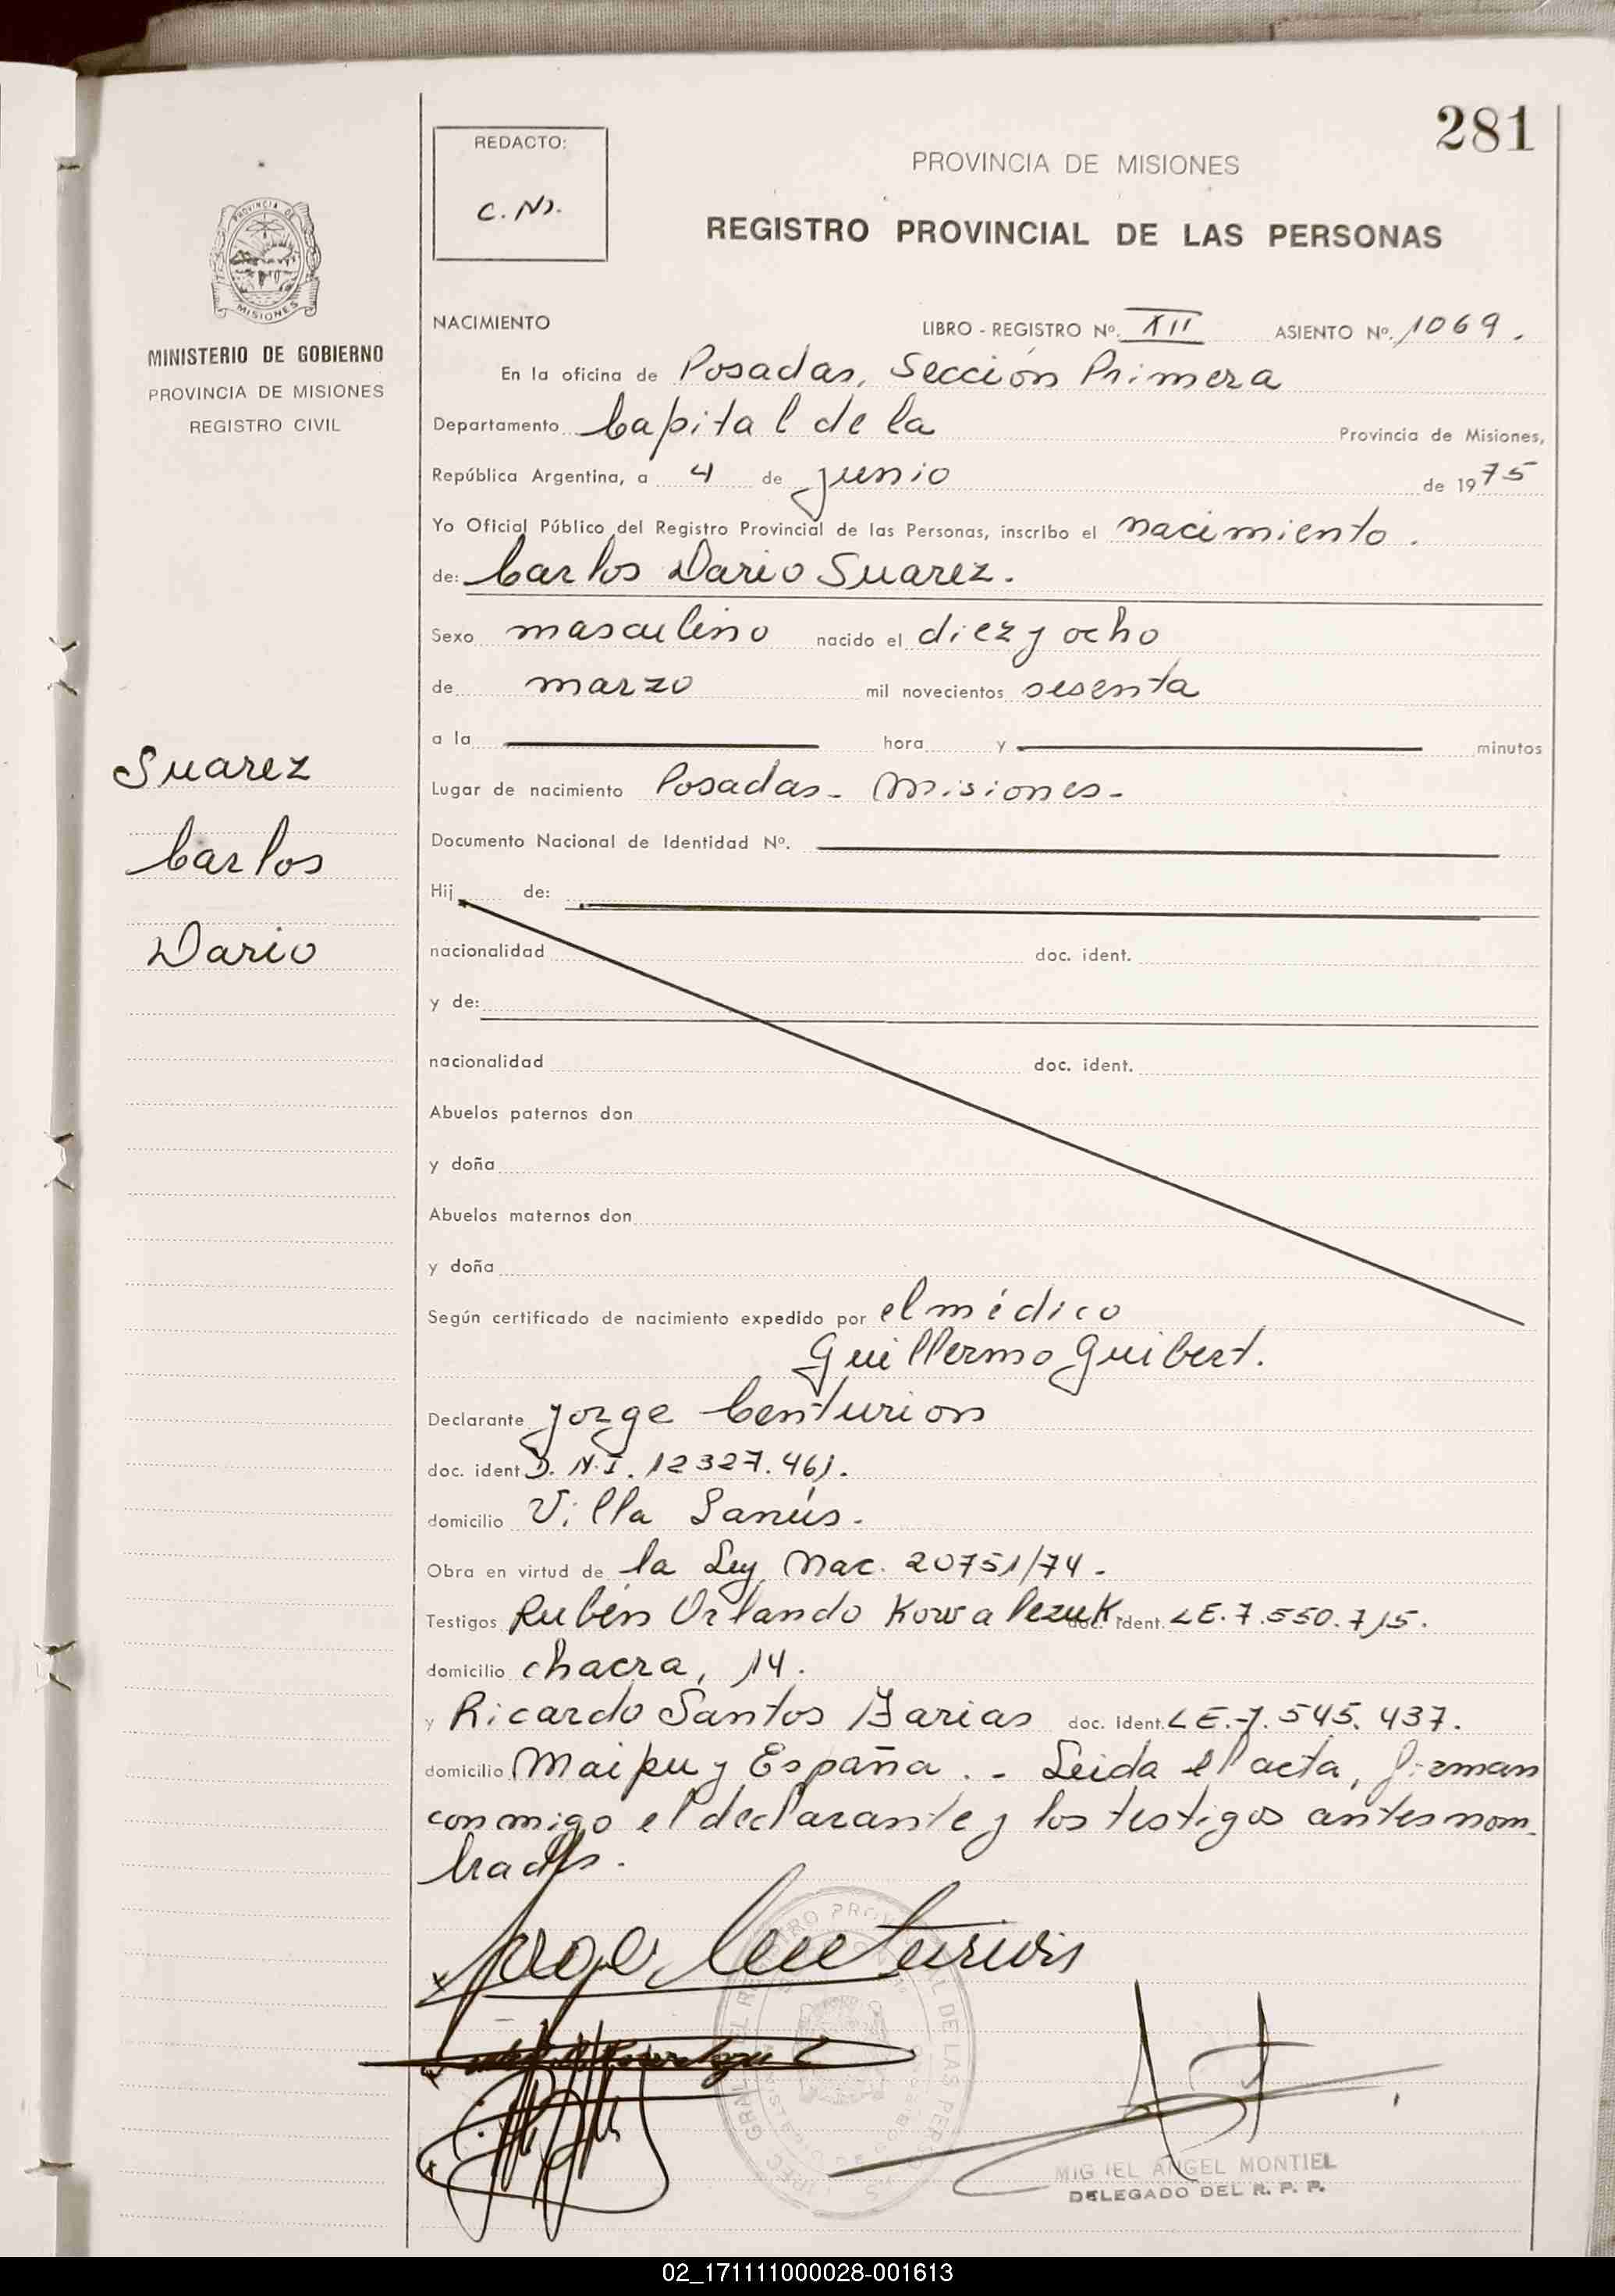 281
REDACTO:
C. N.
PROVINCIA DE MISIONES
REGISTRO PROVINCIAL DE LAS PERSONAS
PROVINCIA DE
MISIONES
MINISTERIO DE GOBIERNO
PROVINCIA DE MISIONES
REGISTRO CIVIL
Suarez
Carlos
Dario
NACIMIENTO LIBRO - REGISTRO Nº. XII ASIENTO Nº. 1069.
En la oficina de Posadas, Sección Primera
Departamento Capital de la Provincia de Misiones,
República Argentina, a 4 de junio de 1975
Yo Oficial Público del Registro Provincial de las Personas, inscribo el nacimiento.
de: Carlos Dario Suarez.
Sexo masculino nacido el diez y ocho
de marzo mil novecientos sesenta
a la hora y minutos
Lugar de nacimiento Posadas - Misiones -
Documento Nacional de Identidad Nº.
Hij de:
nacionalidad doc. ident.
y de:
nacionalidad doc. ident.
Abuelos paternos don
y doña
Abuelos maternos don
y doña
Según certificado de nacimiento expedido por el médico
Guillermo Guibert.
Declarante Jorge Centurion
doc. ident. D.N.I. 12327.461.
domicilio Villa Lanús.
Obra en virtud de la Ley Nac. 20751/74.
Testigos Rubén Orlando Kowalezuk doc. ident. LE. 7.550.715.
domicilio chacra, 14.
y Ricardo Santos Farias doc. ident. LE. 7.545.437.
domicilio Maipu y España. - Leida el acta, firman
conmigo el declarante y los testigos antes nom-
brados.
Jorge Centurion
MIG IEL ANGEL MONTIEL
DELEGADO DEL R. P. P.
02_171111000028-001613